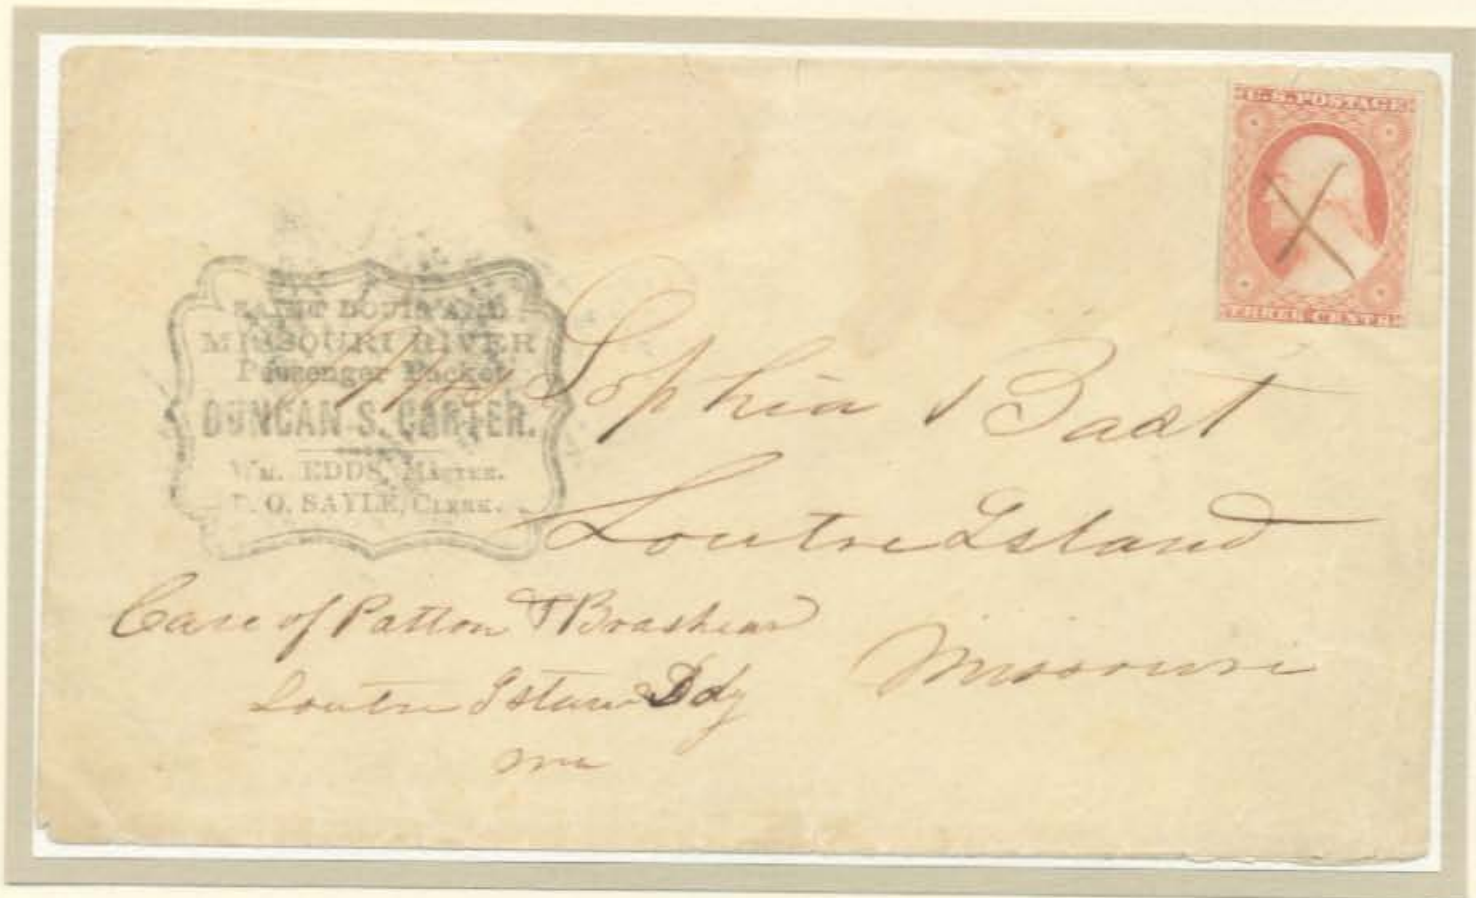 U.S. POSTAGE
THREE CENTS
SAINT LOUIS AND
MISSOURI RIVER
Passenger Packet
DUNCAN S. CARTER.
WM. EDDS, MASTER.
O. SAYLE, CLERK.
Sophia Bast
Loutre Island
Missouri
Care of Patton & Brashear
Loutre Island
Mo